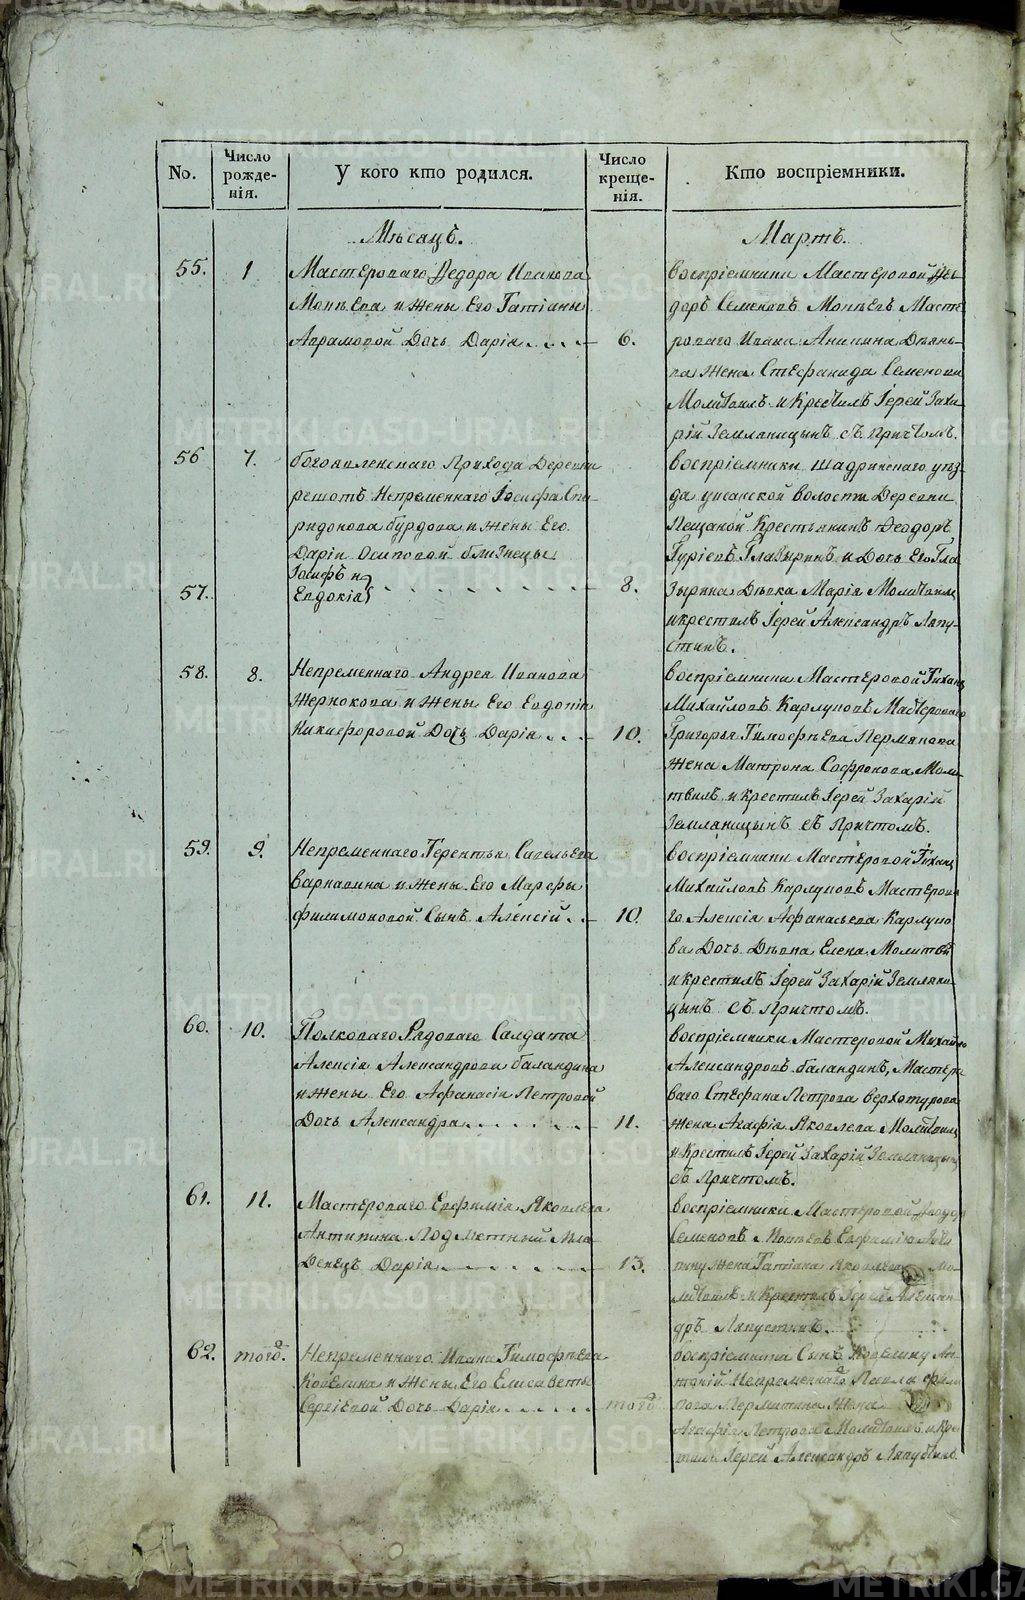 METRIKI.GASO-URAL.RU
No.
Число рожде-нія.
У кого кто родился.
Число креще-нія.
Кто воспріемники.
Мѣсяцъ.
Мартъ.
55.
1
Мастероваго Ѳедора Иванова
и жены Его Татіаны
Аврамовой Дочь Дарія
6.
воспріемники Мастеровой Ѳео-
доръ Семеновъ Масте-
роваго Ивана Аникина
ва жена Стефанида Семенова
Молитвилъ и Крестилъ Іерей Заха-
рій Земляницынъ съ Причтомъ.
56
7.
богоявленскаго Прихода Деревни
решотъ Непременнаго Іосифа Спи-
ридонова бурдова и жены Его
Даріи Осиповой близнецы
Іосифъ и
57.
Евдокія
8.
воспріемники шадринскаго уѣз-
да волости Деревни
Пещаной Крестьянинъ Ѳеодоръ
Гуріевъ Глазыринъ и Дочь Его Гла
зырина Дѣвка Марія Молитвилъ
и крестилъ Іерей Александръ Ляпу-
стинъ.
58.
8.
Непременнаго Андрея Иванова
Жернокова и жены Его Евдокіи
Никифоровой Дочь Дарія
10.
воспріемники Мастеровой Тихонъ
Михайловъ Карлуковъ Мастероваго
Григорья Тимофѣева Пермякова
жена Матрона Софронова Моли-
твилъ и крестилъ Іерей Захарій
Земляницынъ съ Причтомъ.
59.
9.
Непременнаго Терентья Савельева
варнавина и жены Его Марфы
филимоновой Сынъ Алексій
10.
воспріемники Мастеровой Тихонъ
Михайловъ Карлуковъ Мастерова
го Алексія Афанасьева Карлуко
ва Дочь Дѣвка Елена Молитви
и крестилъ Іерей Захарій Земляни-
цынъ съ Причтомъ.
60.
10.
Полковаго Рядоваго Салдата
Алексія Александрова баландина
и жены Его Афанасіи Петровой
Дочь Александра
11.
воспріемники Мастеровой Михайло
Александровъ баландинъ, Мастеро
ваго Стефана Петрова верхотурова
жена Агафія Яковлева Молитвилъ
и Крестилъ Іерей Захарій Земляницынъ
съ Причтомъ.
61.
11.
Мастероваго Евфимія Яковлева
Антипина Подметный мла
Денецъ Дарія
13.
воспріемники Мастеровой Ѳеодоръ
Семеновъ
жена Татіана Мо-
литвилъ и Крестилъ Іерей Алексан-
дръ Ляпустинъ.
62.
тогоже.
Непременнаго Ивана Тимофѣева
Кобелина и жены Его Елисаветы
Сергіевой Дочь Дарія
тогоже
Сынъ Ан-
тоній Непременнаго Павла
жена
Агафія Петрова Молитвилъ и Кре-
стилъ Іерей Александръ Ляпустинъ